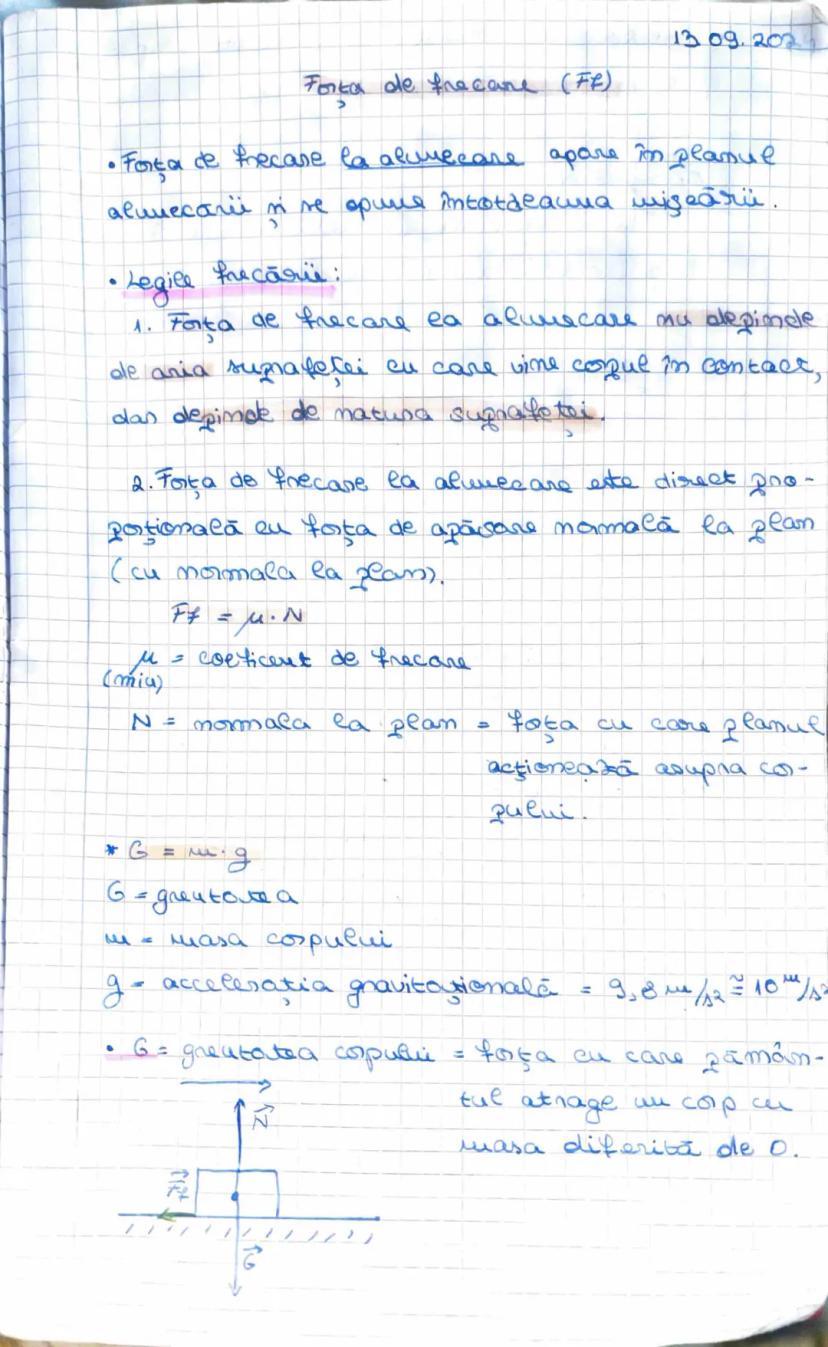 13.09.202
Forța de frecare (Ff)
• Forța de frecare la alunecare apare în planul
alunecării și se opune întotdeauna mișcării.
• Legile frecării:
1. Forța de frecare la alunecare nu depinde
de aria suprafeței cu care vine corpul în contact,
dar depinde de natura suprafeței.
2. Forța de frecare la alunecare este direct pro-
porțională cu forța de apăsare normală la plan
(cu normala la plan).
Ff = μ · N
μ = coeficent de frecare
(miu)
N = normala la plan = forța cu care planul
acționează asupra cor-
pului.
* G = m · g
G = greutatea
m = masa corpului
g = accelerația gravitațională = 9,8 m/s² ≅ 10 m/s²
• G = greutatea corpului = forța cu care pămân-
tul atrage un corp cu
masa diferită de 0.
N⃗
F⃗f
G⃗